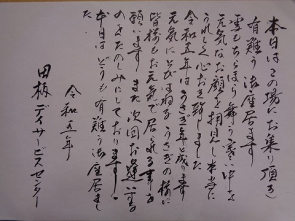 本日はこの場にお集り頂き
有難う御座居ます
雪もちらほら舞う寒い中よ
元気なお顔を拝見し本当に
うれしく心より感謝します
令和五年はうさぎ年と成り
元気にとびはねるうさぎの様に
皆様もお元気で居られる事を
願います また次回お逢い事
のをたのしみにしております
本日はどうも有難う御座居まし
た
令和五年
田柄デイサービスセンター